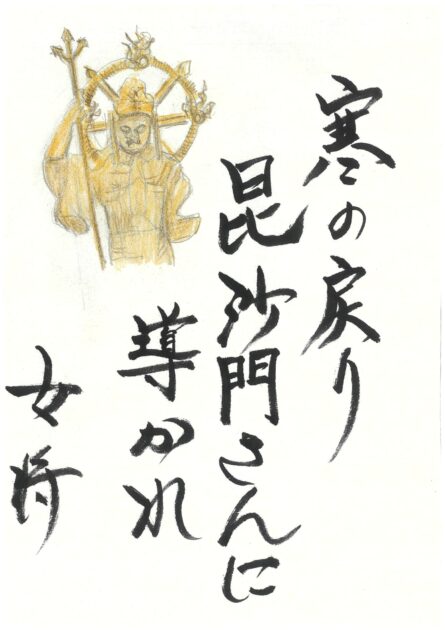 寒の戻り
毘沙門さんに
導かれ
女将